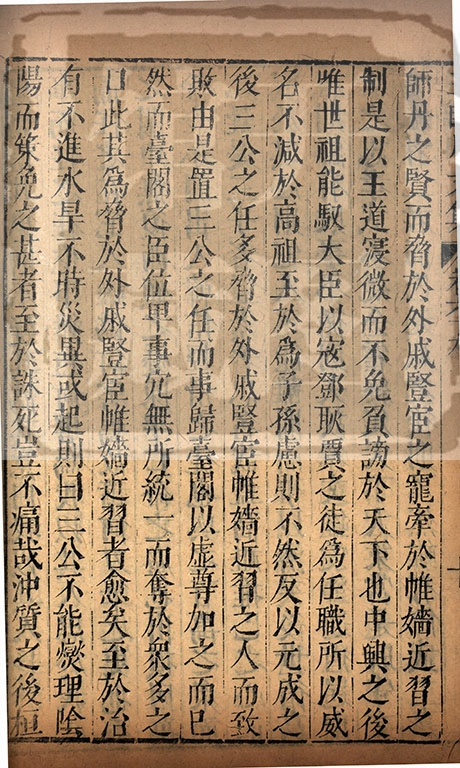 師丹之賢而脅於外戚豎宦之寵牽於帷嬙近習之
制是以王道寖微而不免負謗於天下也中興之後
唯世祖能馭大臣以寇鄧耿賈之徒爲任職所以威
名不減於高祖至於爲子孫慮則不然反以元成之
後三公之任多脅於外戚豎宦帷嬙近習之人而致
敗由是置三公之任而事歸臺閣以虛尊加之而已
然而臺閣之臣位卑事冗無所統一而奪於衆多之
口此其爲脅於外戚豎宦帷嬙近習者愈矣至於治
有不進水旱不時災異或起則曰三公不能燮理陰
陽而策免之甚者至於誅死豈不痛哉沖質之後桓